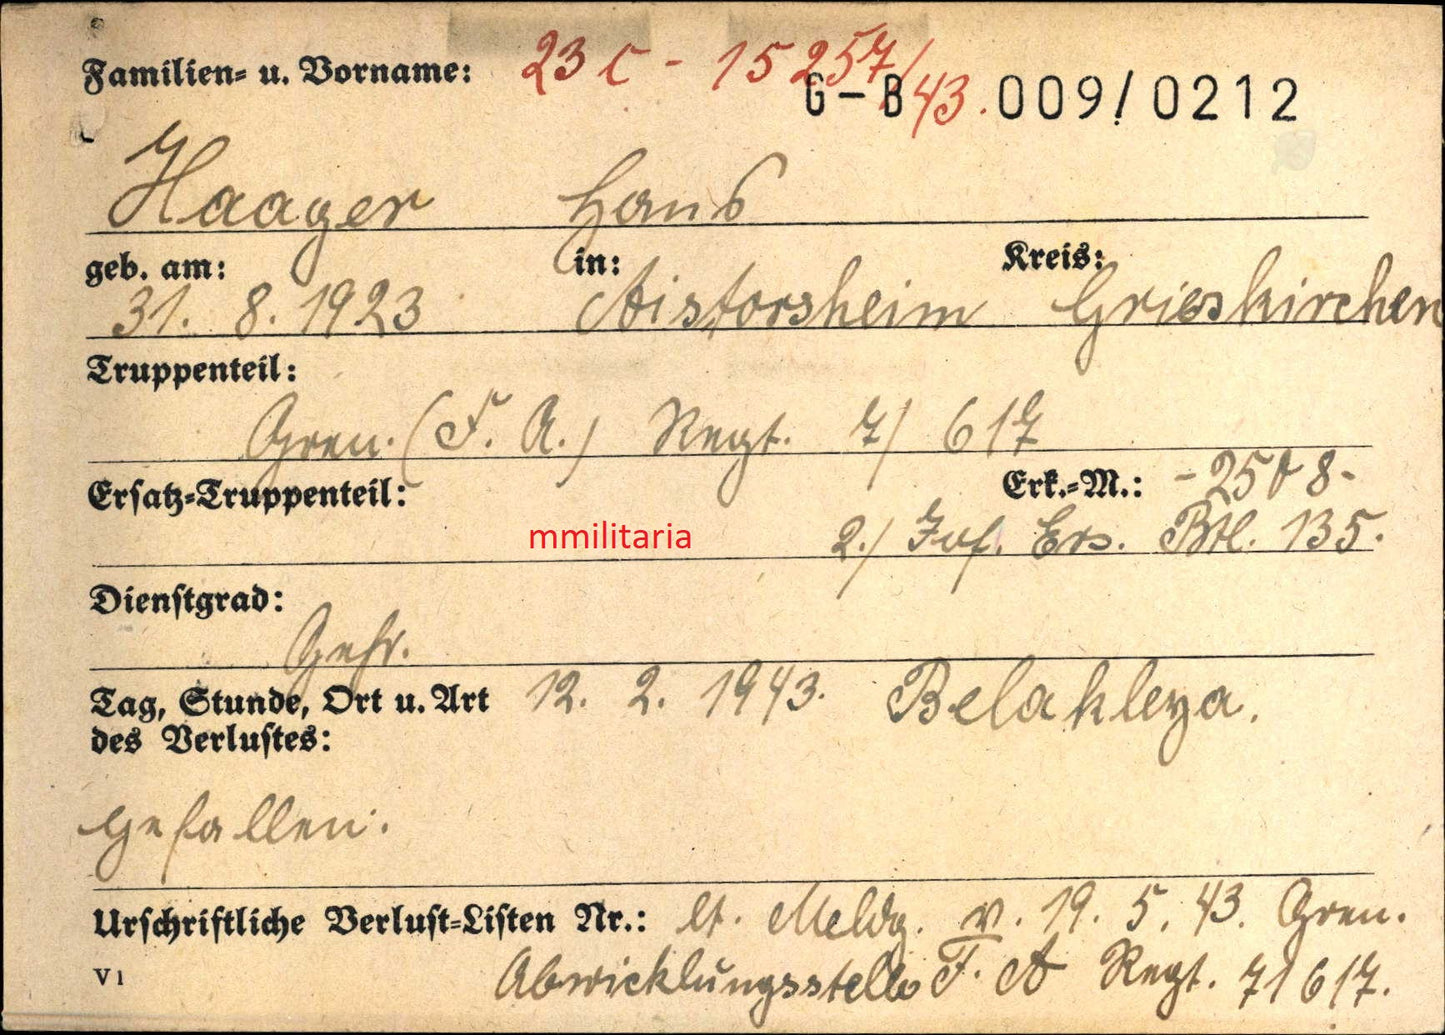 Familien- u. Vorname: 23 C - 15 257/43. G-B 009/0212
Haager Hans
geb. am: in: Kreis:
31. 8. 1923 Aistorsheim Grieskirchen
Truppenteil:
Gren. (F. A.) Regt. 7/ 617
Ersatz-Truppenteil: Erk.-M.: - 2508 -
mmilitaria 2./ Inf. Ers. Btl. 135.
Dienstgrad:
Gefr.
Tag, Stunde, Ort u. Art 12. 2. 1943. Belakleya.
des Verlustes:
gefallen.
Urschriftliche Verlust-Listen Nr.: lt. Meldg. v. 19. 5. 43. Gren.
V1 Abwicklungsstelle F. A Regt. 7/617.